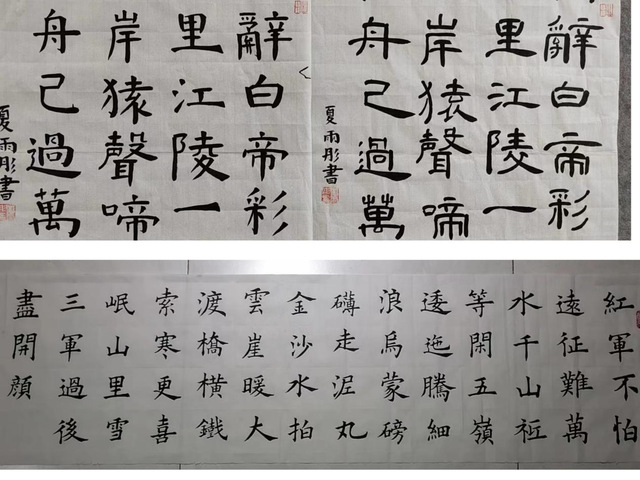 辭白帝彩
里江陵一
岸猿聲啼
舟己過萬
夏雨彤書
辭白帝彩
里江陵一
岸猿聲啼
舟己過萬
夏雨彤書
紅軍不怕
遠征難萬
水千山衹
等閑五嶺
逶迤騰細
浪烏蒙磅
礴走泥丸
金沙水拍
雲崖暖大
渡橋橫鐵
索寒更喜
岷山里雪
三軍過後
盡開顔